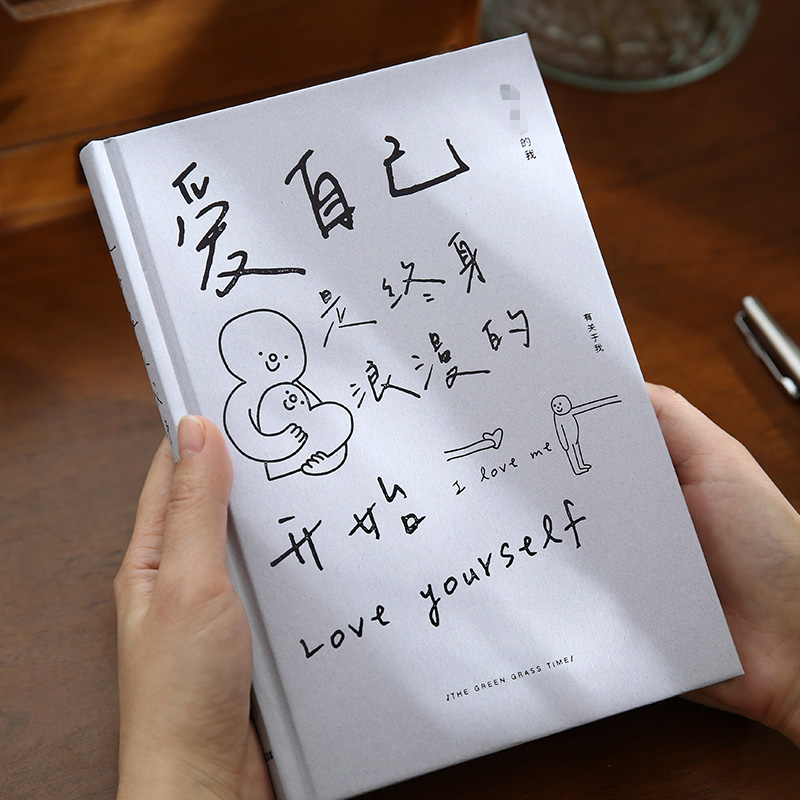 的我
爱自己
是终身
浪漫的
有关于我
I love me
开始
Love yourself
/THE GREEN GRASS TIME/